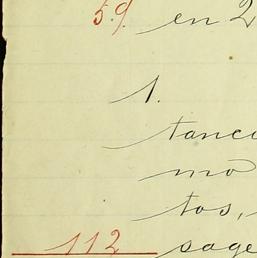 59. en 2
1.
tanci
mo
tos,
112 sage